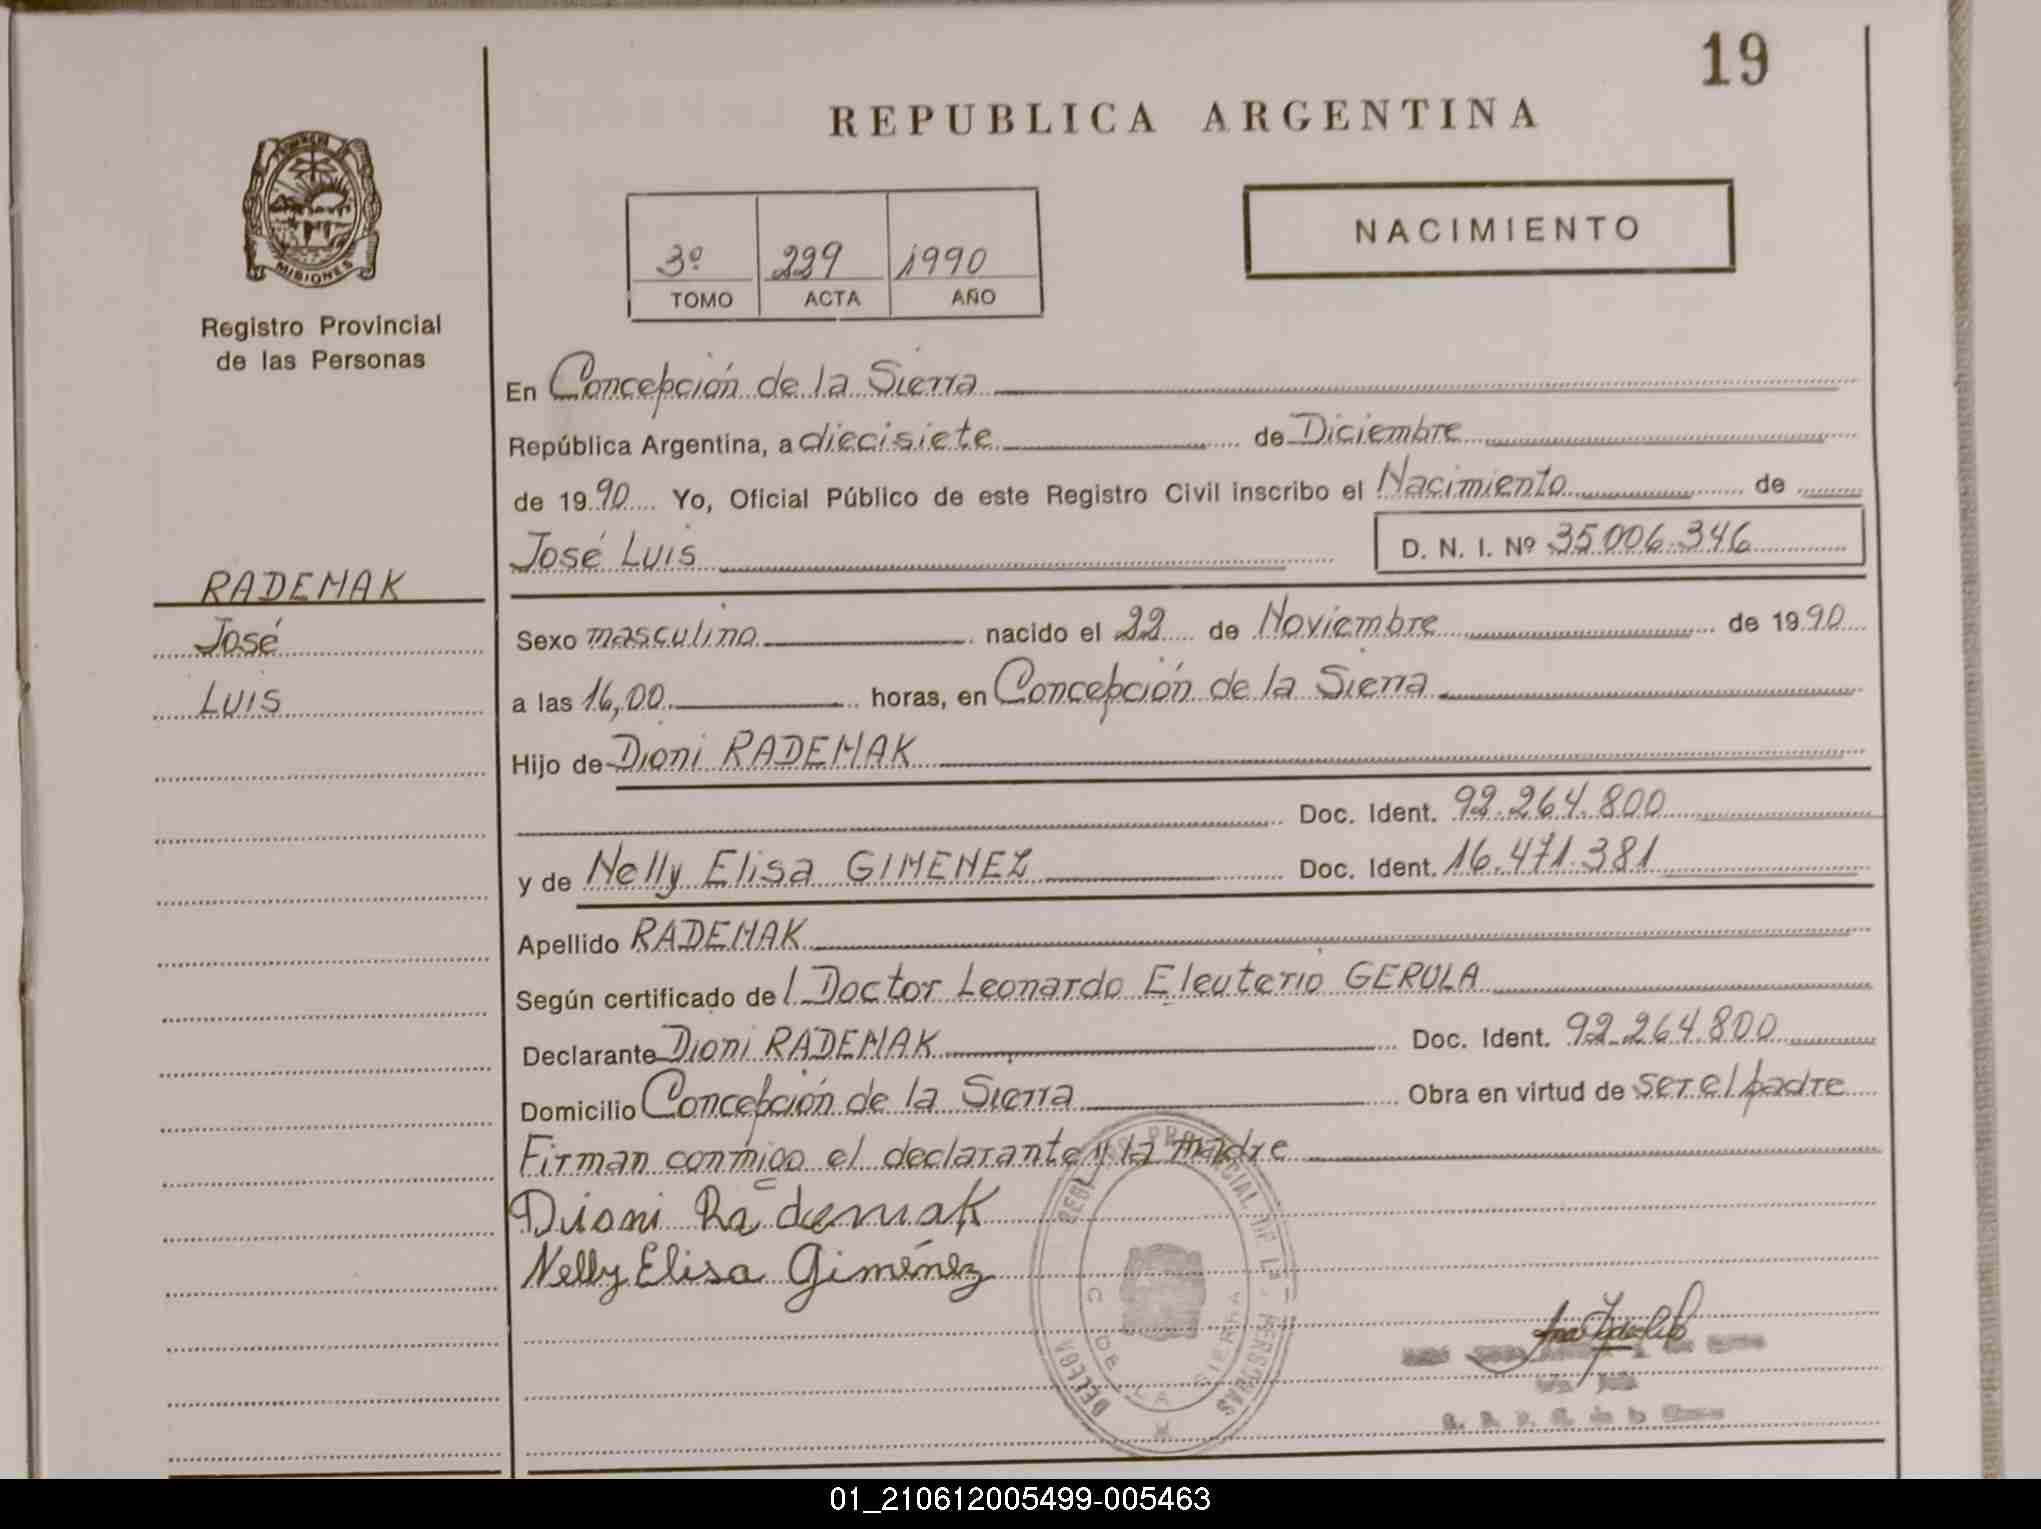 19
REPUBLICA ARGENTINA
MISIONES
Registro Provincial
de las Personas
3º 229 1990
TOMO ACTA AÑO
NACIMIENTO
En Concepción de la Sierra
República Argentina, a diecisiete de Diciembre
de 1990 Yo, Oficial Público de este Registro Civil inscribo el Nacimiento de
José Luis D. N. I. Nº 35.006.346
RADEMAK
José
Luis
Sexo masculino nacido el 22 de Noviembre de 1990
a las 16,00 horas, en Concepción de la Sierra
Hijo de Dioni RADEMAK
Doc. Ident. 92.264.800
y de Nelly Elisa GIMENEZ Doc. Ident. 16.471.381
Apellido RADEMAK
Según certificado del Doctor Leonardo Eleuterio GEROLA
Declarante Dioni RADEMAK Doc. Ident. 92.264.800
Domicilio Concepción de la Sierra Obra en virtud de ser el padre
Firman conmigo el declarante y la madre
Dioni Rademak
Nelly Elisa Giménez
REGISTRO PROVINCIAL DE LAS PERSONAS
C DE LA SIERRA
01_210612005499-005463